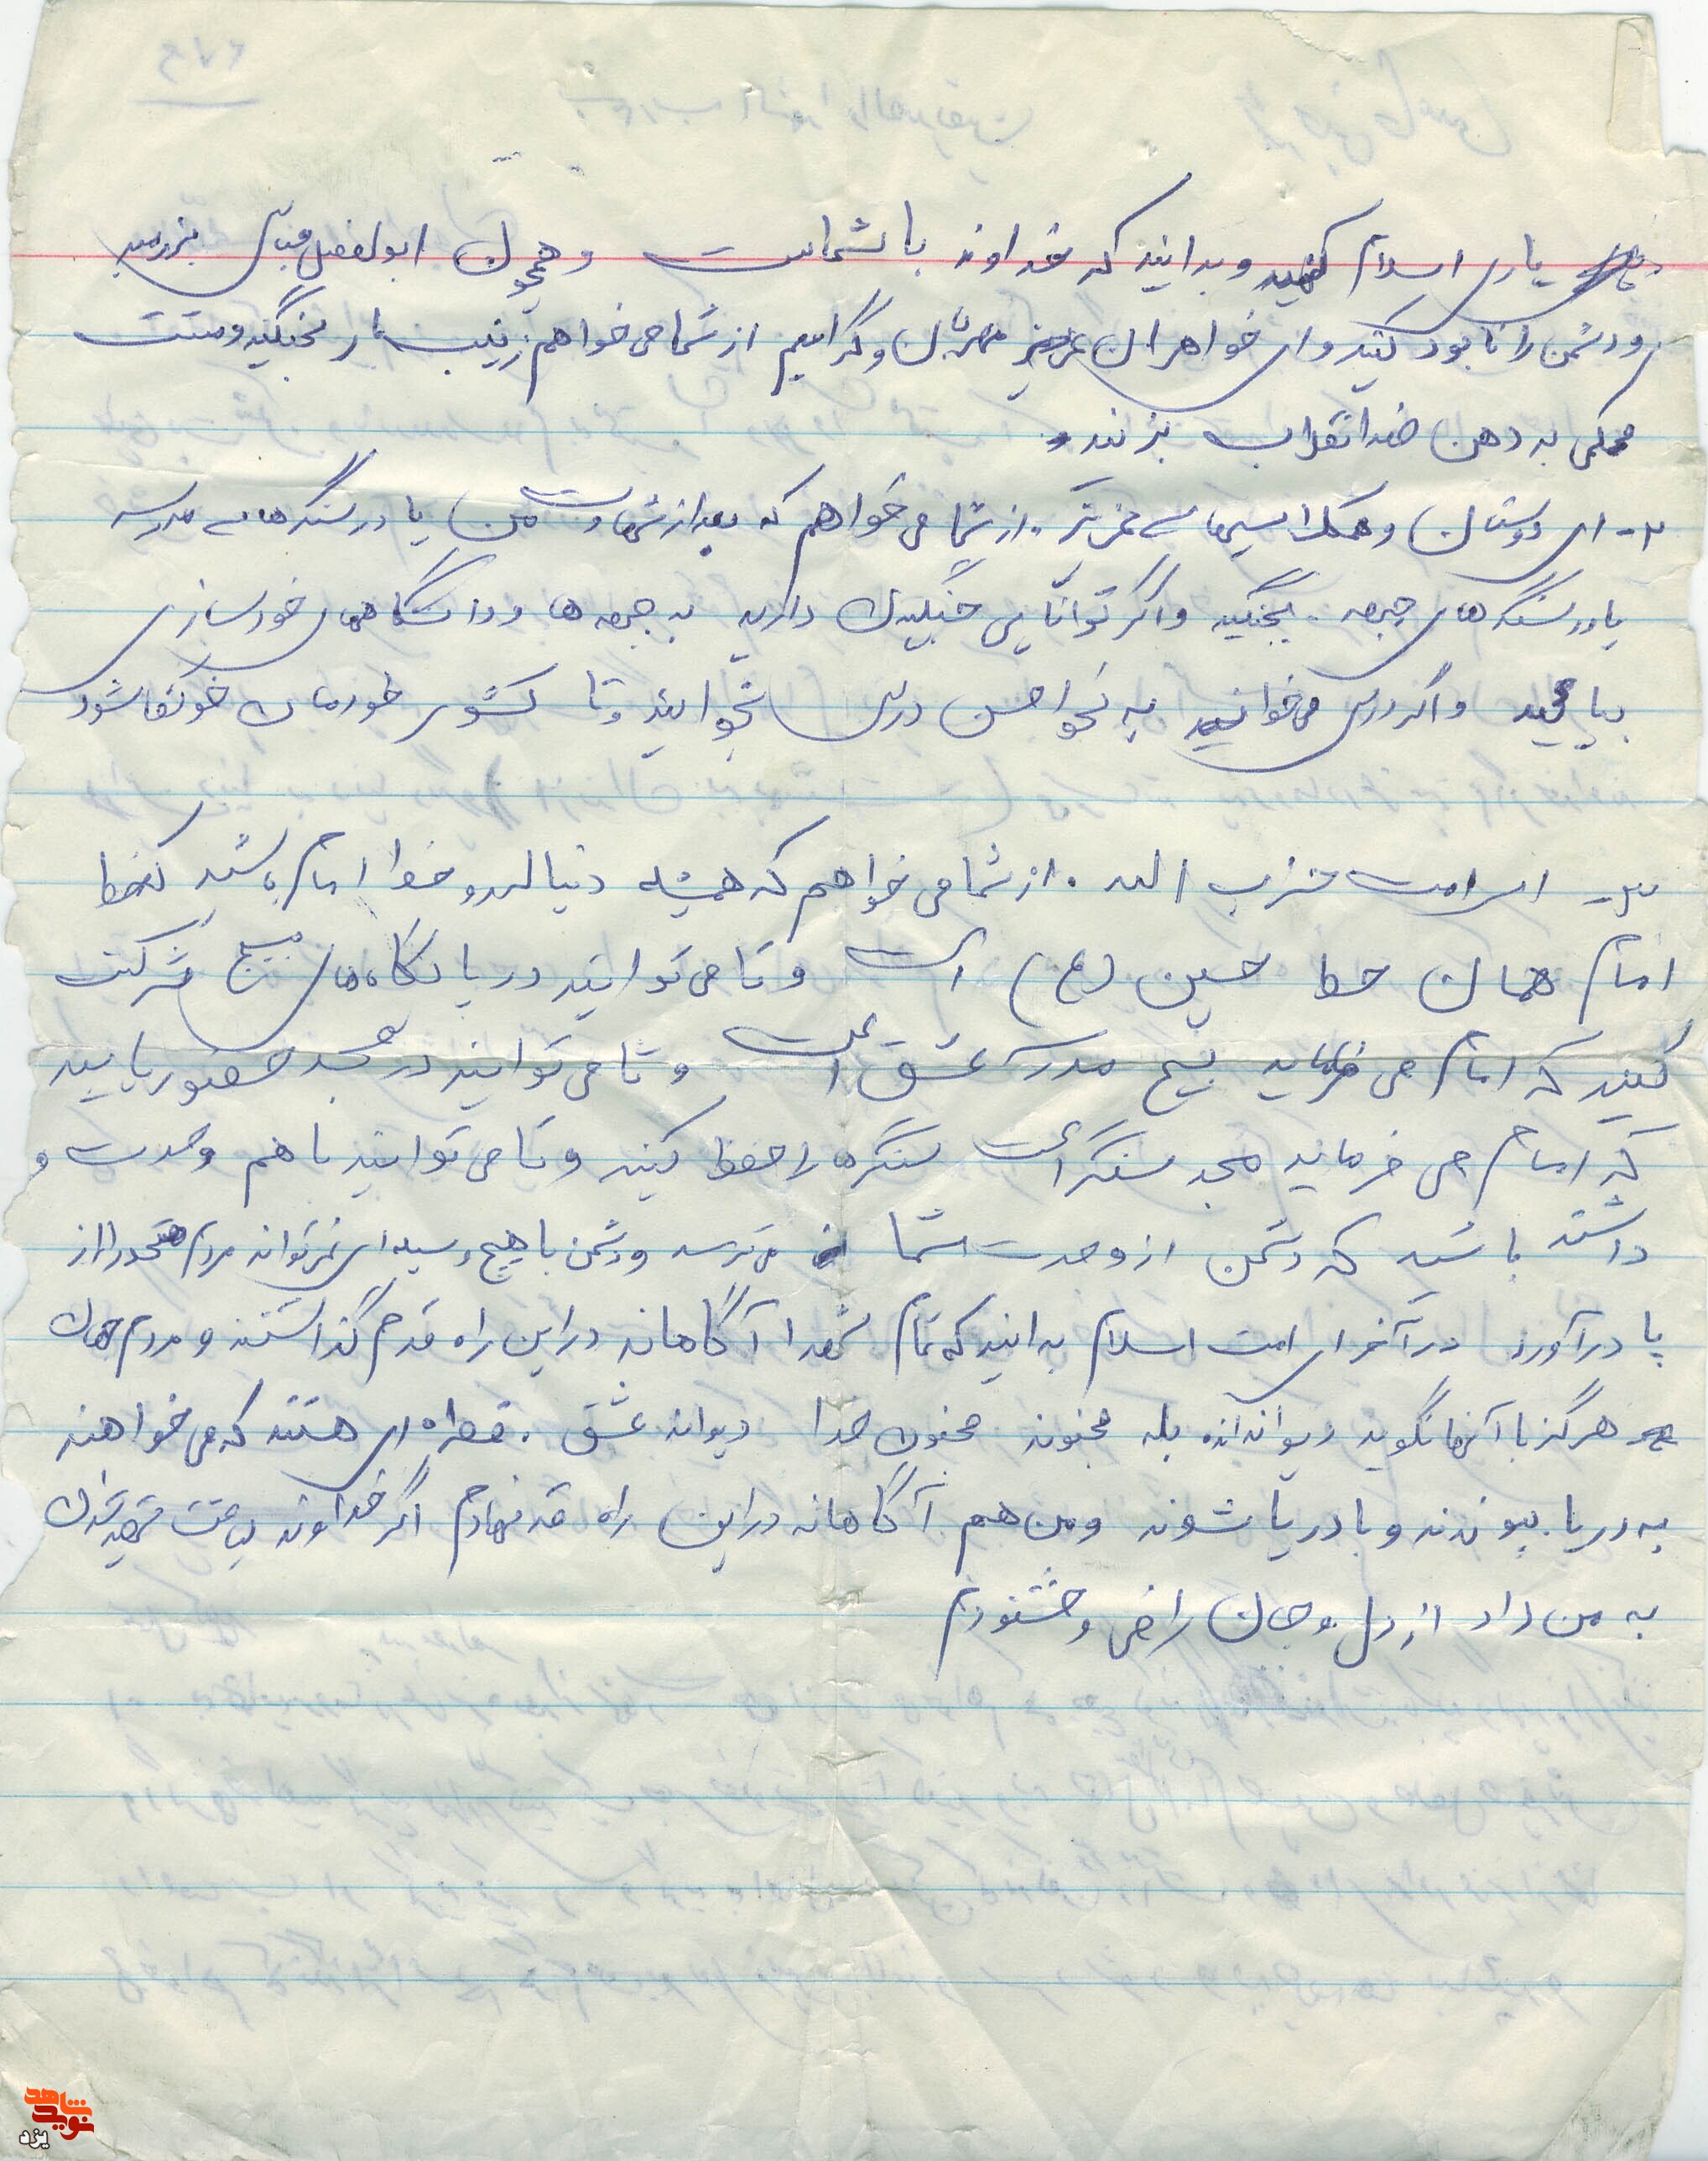 یاری اسلام کنید و بدانید که خداوند با شماست و همچون ابوالفضل عباس بزرمید
و دشمن را نابود کنید و ای خواهران مهربان و گرامیم از شما می خواهم زینب وار بجنگید و مشت
محکمی به دهن ضد انقلاب بزنند و
۲- ای دوستان و همکلاسیهای عزیزتر از شما می خواهم که بعد از شهادت من یا در سنگرهای مدرسه
یا در سنگرهای جبهه بجنگید و اگر توانایی جنگیدن دارید به جبهه ها و دانشگاههای خودسازی
بیایید و اگر درس می خوانید به نحو احسن درس بخوانید و تا کشور خودمان خودکفا شود
۳- ای امت حزب الله . از شما می خواهم که همیشه دنباله رو خط امام باشید که خط
امام همان خط حسین (ع) است و تا می توانید در پایگاه های بسیج شرکت
کنید که امام می فرماید بسیج مدرسه عشق است و تا می توانید در مسجد حضور یابید
که امام می فرماید مسجد سنگر است سنگرها را حفظ کنید و تا می توانید با هم وحدت و
داشته باشید که دشمن از وحدت شما می ترسد و دشمن با هیچ وسیله ای نمی تواند مردم متحد را از
پا درآورد در آخر ای امت اسلام بدانید که تمام شهدا آگاهانه در این راه قدم گذاشتند و مردم جهان
هرگز با آنها نگوید دیوانه اند بله مجنونند مجنون خدا دیوانه عشق . قطراه ای هستند که می خواهند
به دریا بپیوندند و با دریا شوند و من هم آگاهانه در این راه قدم نهادم اگر خداوند لیاقت شهید شدن
به من داد از دل و جان راضی و خشنودم
شاهد
نوید
یزد